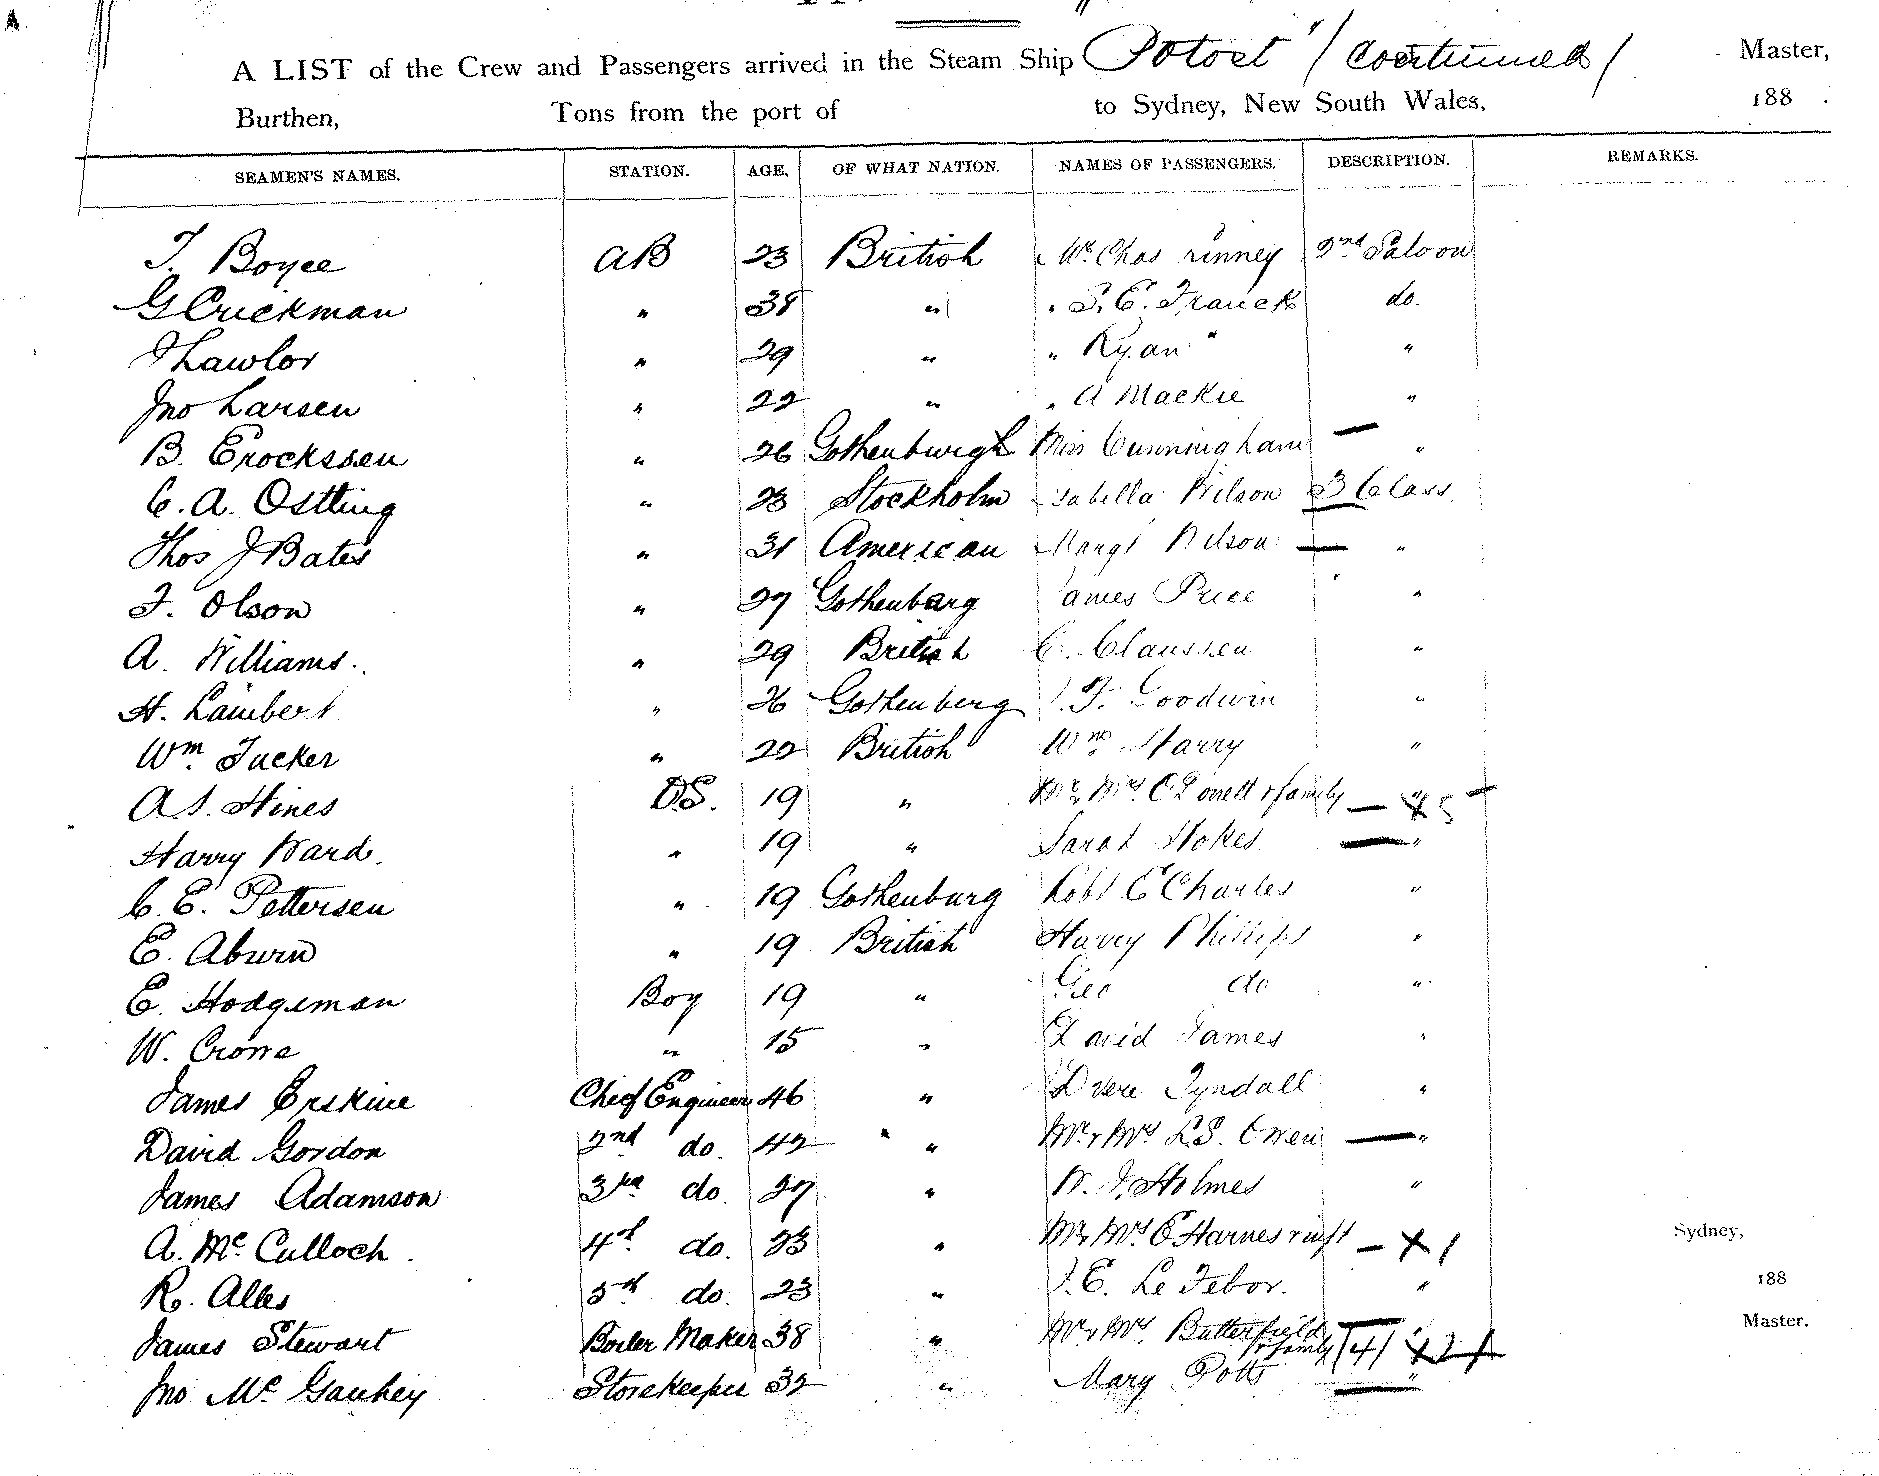 A LIST of the Crew and Passengers arrived in the Steam Ship "Potosi" / Continued / Master,
Burthen, Tons from the port of to Sydney, New South Wales, 188 .
SEAMEN'S NAMES. STATION. AGE. OF WHAT NATION. NAMES OF PASSENGERS. DESCRIPTION. REMARKS.
T. Boyce AB 23 British Mr Chas Finney 2nd Saloon
G Crickman " 38 " " S. E. Franck do.
Lawlor " 29 " " Ryan " "
Jno Larsen " 22 " " A Mackie "
B. Erockssen " 26 Gothenburgh Miss Cunningham — "
C. A. Ostling " 23 Stockholm Isabella Wilson 3 Class
Thos J Bates " 31 American Margt Wilson — "
F. Olson " 27 Gothenburg James Price "
A. Williams. " 29 British C. Claussen "
H. Lambert " 26 Gothenberg J. F. Goodwin "
Wm Tucker " 22 British Wm Harry "
A S. Hines OS. 19 " Mr & Mrs C Lovell & family — X 5 —
Harry Ward. " 19 " Sarah Stokes — "
C. E. Pettersen " 19 Gothenburg Robt E Charles "
E. Aburn " 19 British Harry Phillips "
E. Hodgeman Boy 19 " Geo do "
W. Crowe " 15 " David James "
James Erskine Chief Engineer 46 " D vere Tyndall "
David Gordon 2nd do. 42 " Mr & Mrs L. S. Owen — "
James Adamson 3rd do. 27 " W. J. Holmes "
A. Mc Culloch. 4th do. 23 " Mr & Mrs E Harnes & inft — X 1
Sydney,
R. Alles 5th do. 23 " J. E. Le Febor. "
188
James Stewart Boiler Maker 38 " Mr & Mrs Butterfield & family (4) X 2
Master.
Jno Mc Gauhey Storekeeper 32 " Mary Potts "